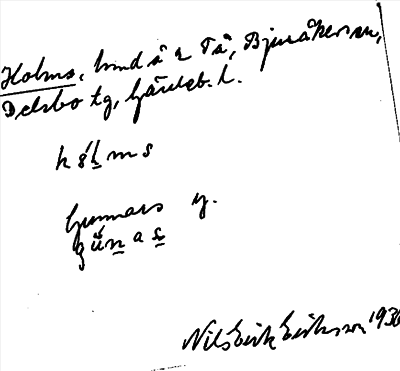 Holms, hmd å 2 Tå, Bjuråkers sn,
Delsbo tg, Gävleb. l.
hǫ́l̲ms
Gunnars g.
gŭn̲as̲
Nils Erik Eriksson 1930